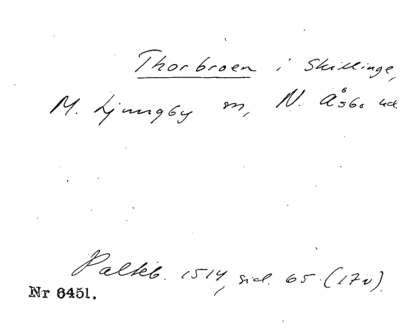 Thorbroen i Skillinge,
M. Ljungby sn, N. Åsbo hd
Palteb. 1514, sid. 65 (17v).
Nr 6451.